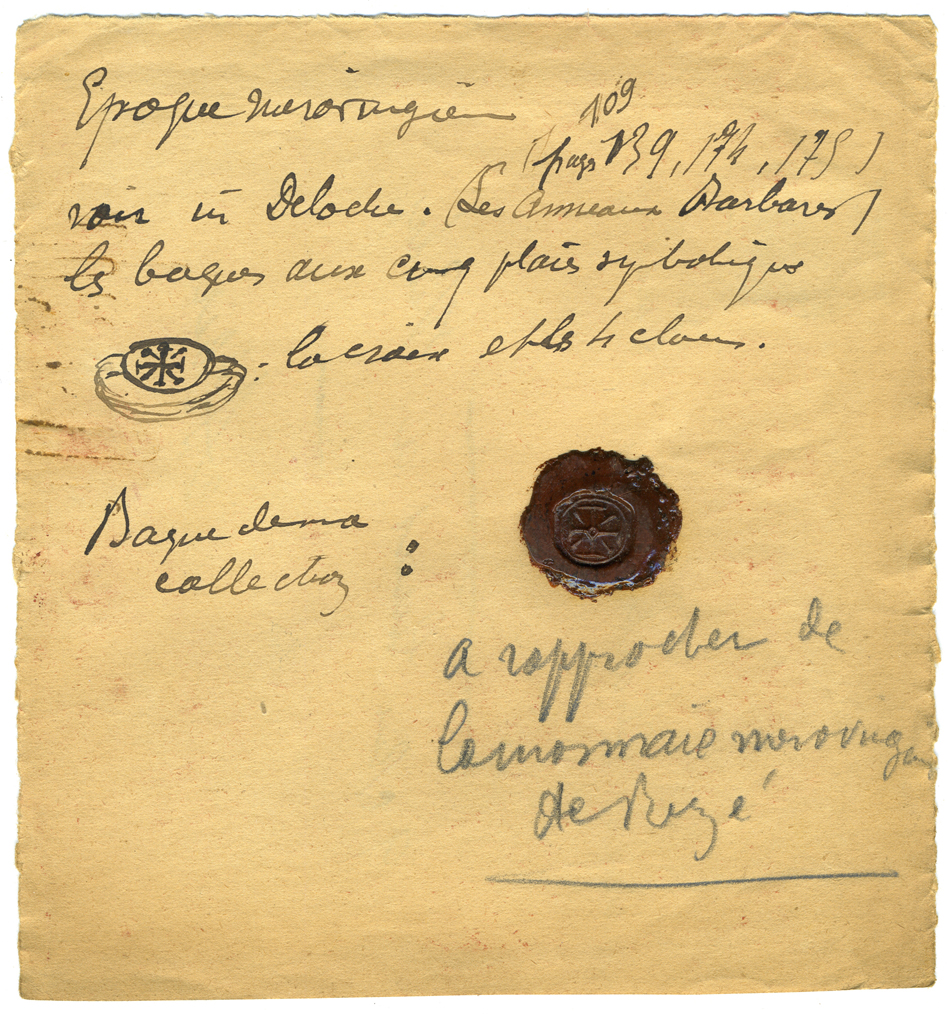 Epoque merovingien
109
(page 139, 174, 175)
voir in Deloche. (Les Anneaux Barbares)
les bagues aux cinq plaies symboliques
: la croix et les 4 clous.
Bague de ma
collection :
A rapprocher de
la monnaie merovingien
de Rezé